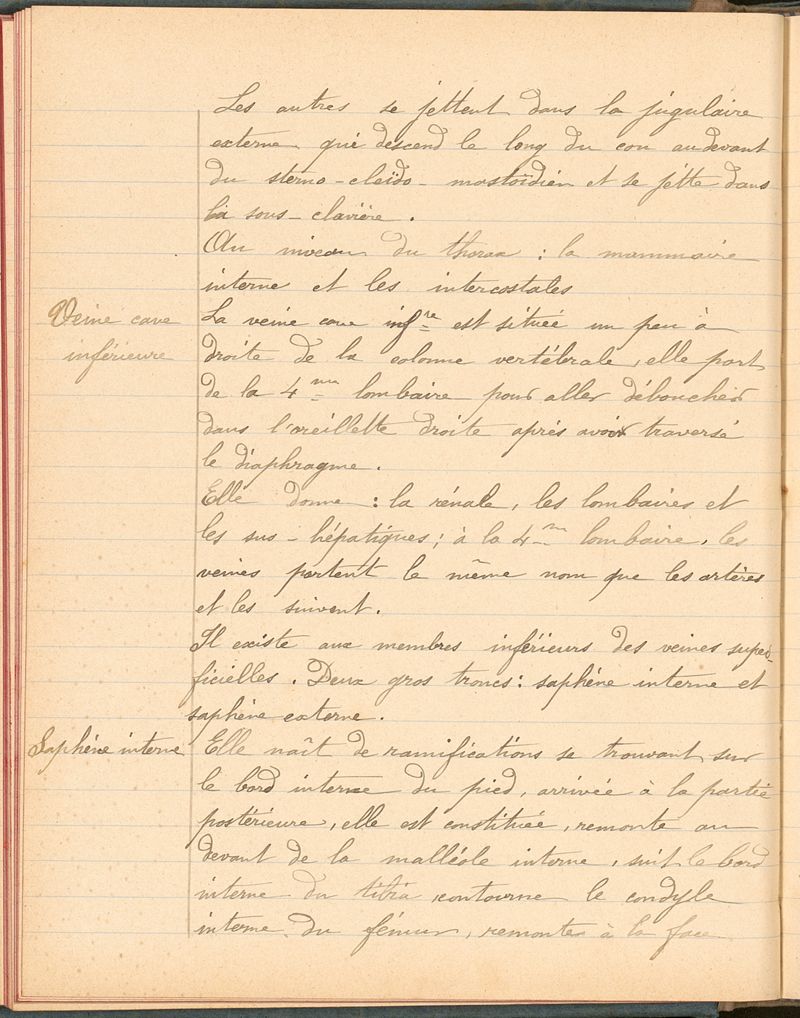 Les autres se jettent dans la jugulaire
externe qui descend le long du cou au devant
du sterno-cleïdo-mastoïdien et se jette dans
la sous-clavière.
Au niveau du thorax : la mammaire
interne et les intercostales
Veine cave
inférieure
La veine cave inf^re est située un peu à
droite de la colonne vertébrale, elle part
de la 4^me lombaire pour aller déboucher
dans l'oreillette droite après avoir traversé
le diaphragme.
Elle donne : la rénale, les lombaires et
les sus-hépatiques ; à la 4^me lombaire, les
veines portent le même nom que les artères
et les suivent.
Il existe aux membres inférieurs des veines super-
ficielles. Deux gros troncs : saphène interne et
saphène externe.
Saphène interne
Elle naît de ramifications se trouvant sur
le bord interne du pied, arrivée à la partie
postérieure, elle est constituée, remonte au
devant de la malléole interne, suit le bord
interne du tibia, contourne le condyle
interne du fémur, remonte à la face